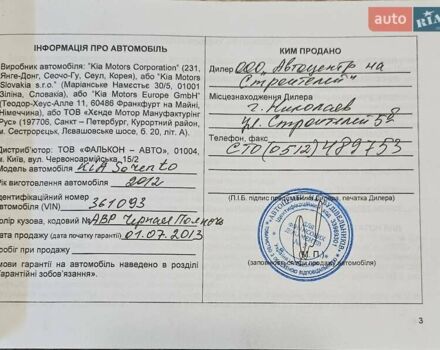 auto RIA
ІНФОРМАЦІЯ ПРО АВТОМОБІЛЬ
Виробник автомобіля: "Kia Motors Corporation" (231,
Янге-Донг, Сеочо-Гу, Сеул, Корея), або "Kia Motors
Slovakia s.r.o." (Маріанське Намєстзє 30/5, 01001
Зіліна, Словакія), або "Kia Motors Europe GmbH"
(Теодор-Хеус-Алле 11, 60486 Франкфурт на Майні,
Німеччина), або ТОВ «Хенде Мотор Мануфактурінг
Рус» (197700, Санкт – Петербург, Курортний район,
м. Сестрорецк, Левашовське шосе, б. 20, літ. А).
Дистриб'ютор: ТОВ «ФАЛЬКОН – АВТО», 01004,
м. Київ, вул. Червоноармійська,15/2
Модель автомобіля KIA Sorento
Рік виготовлення автомобіля 2012
Ідентифікаційний номер
автомобіля (VIN) 361093
Колір кузова, кодовий № ABP Черная
Дата продажу (дата початку гарантії) 01.07.2013
Пробіг при продажу
Умови гарантії на автомобіль наведено в розділі
«Гарантійні зобов'язання».
КИМ ПРОДАНО
Дилер ООО „Автоцентр на
Строителей"
Місцезнаходження Дилера
г. Николаев
ул. Строителей 5
Телефон, факс
СТО (0512) 489753
(П.І.Б. підпис Дилера, печатка Дилера)
(М.П.)
3